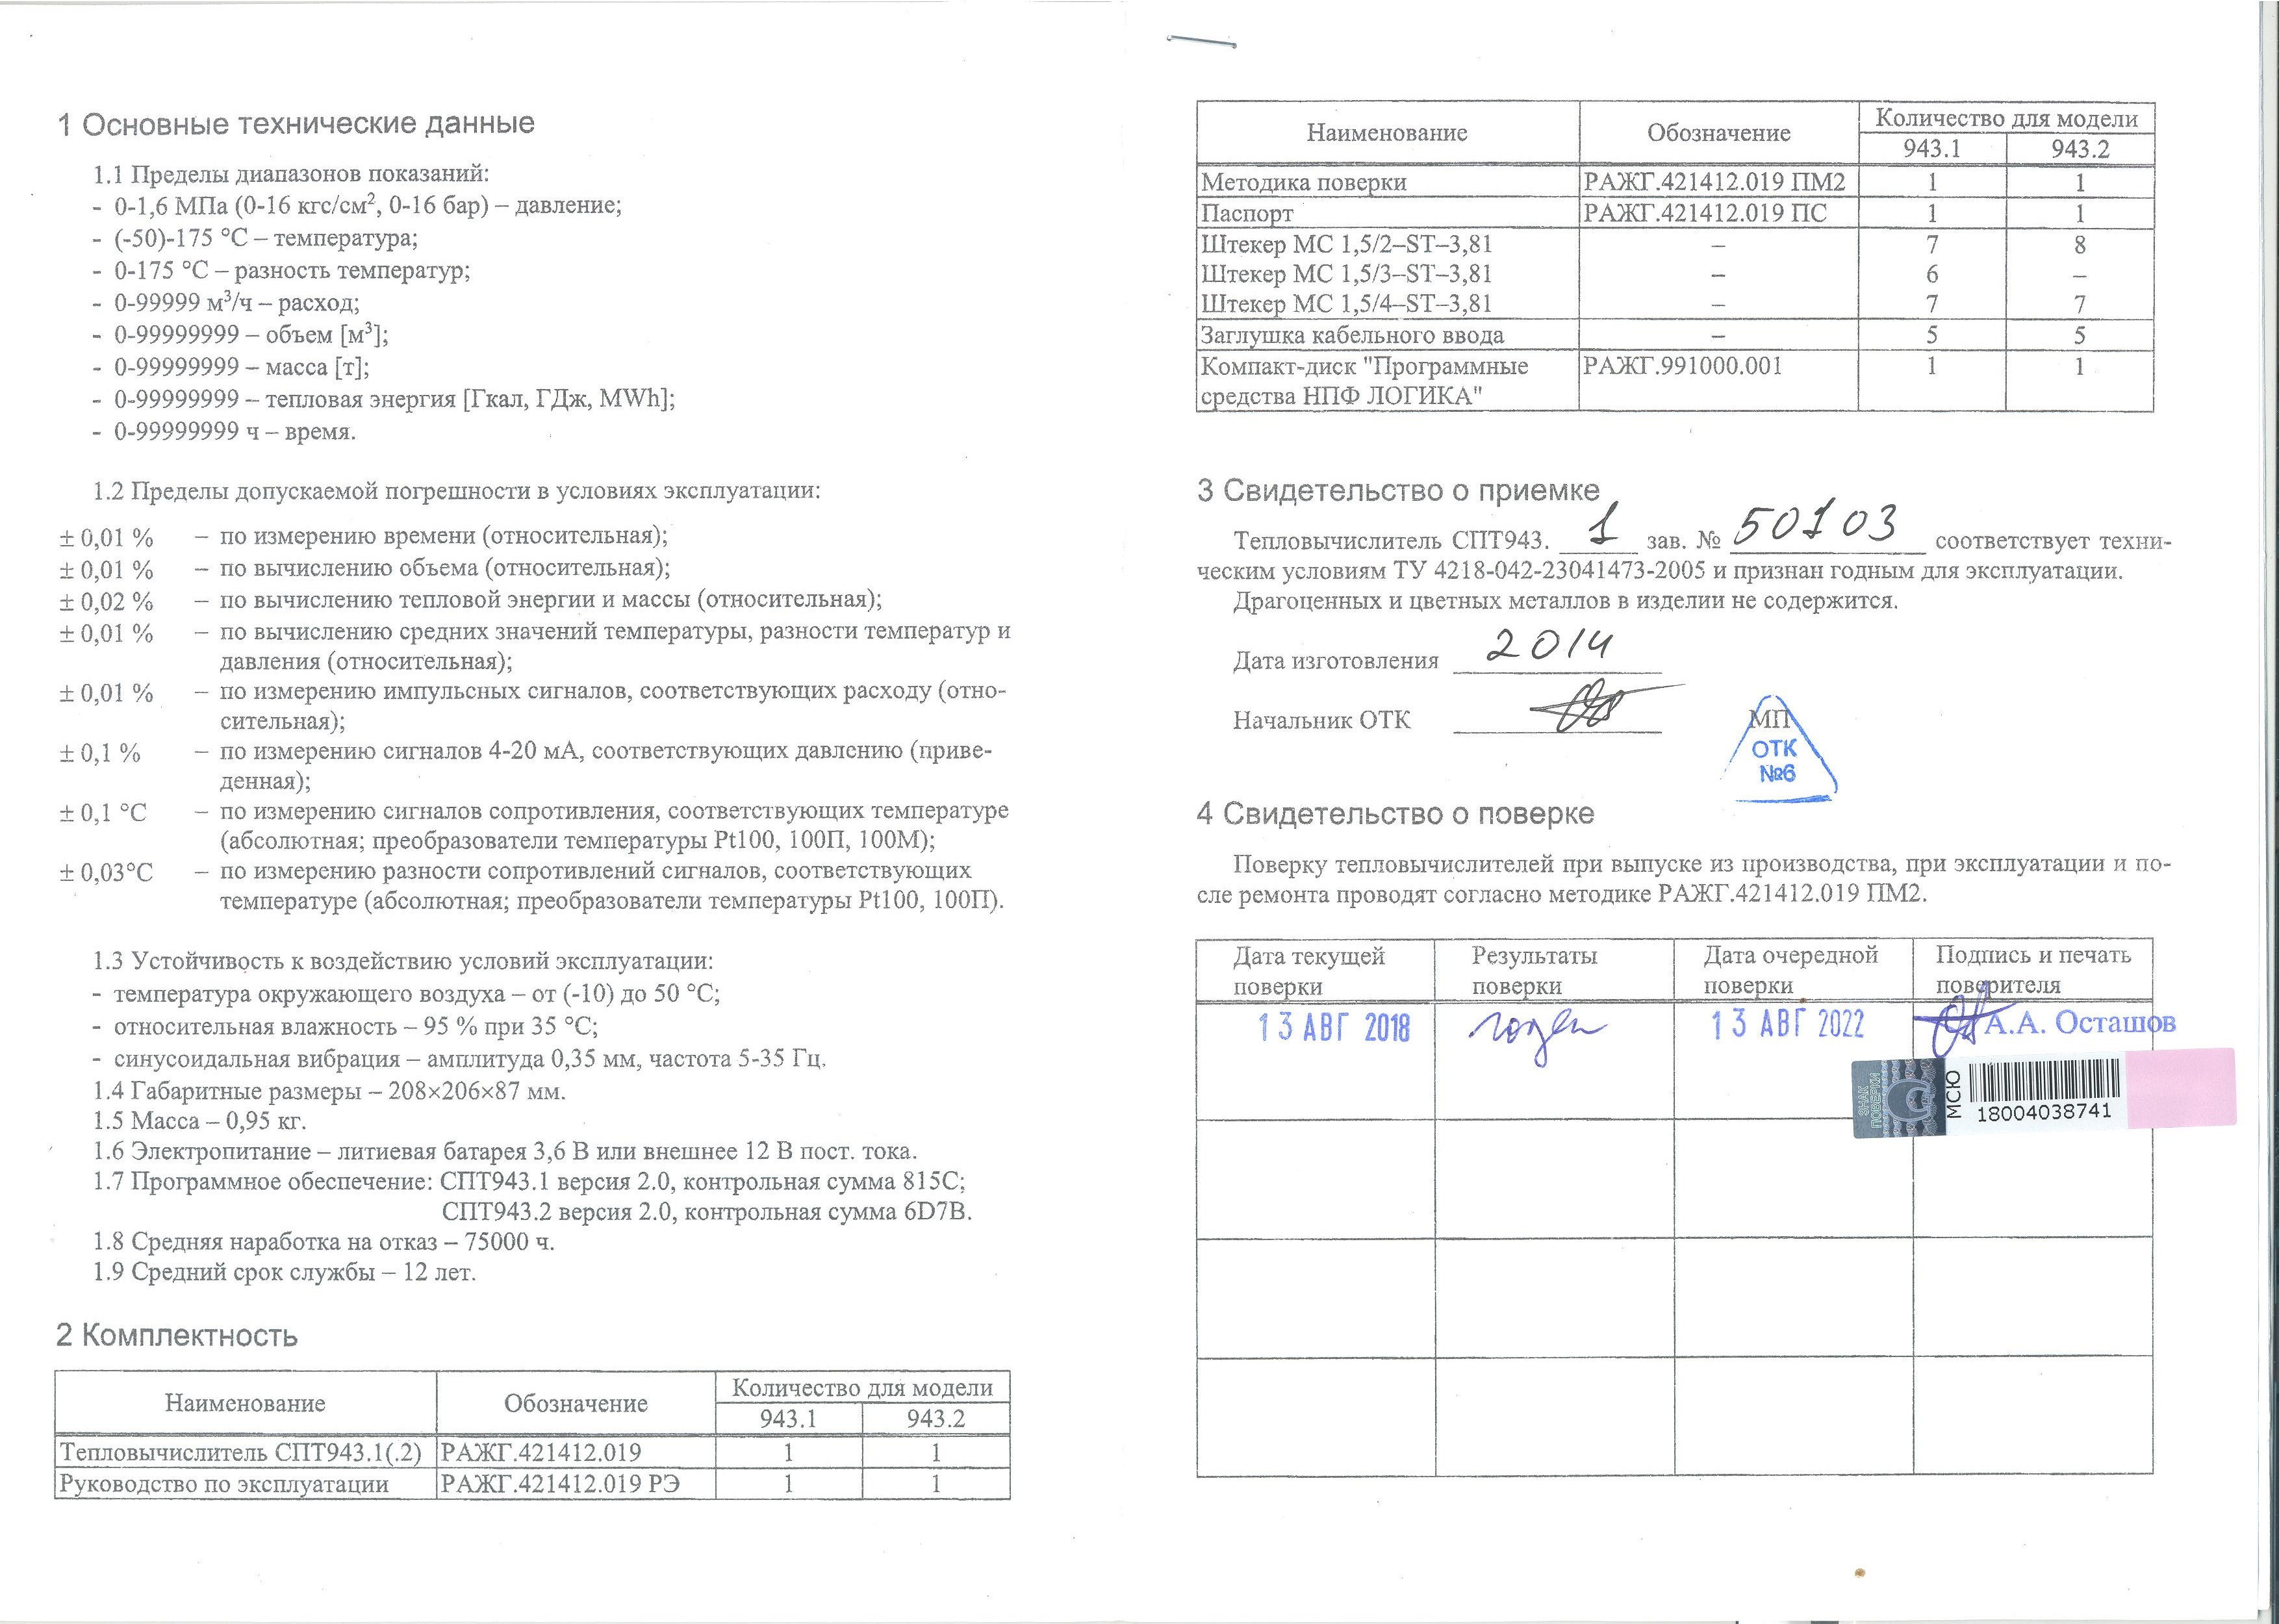 1 Основные технические данные
1.1 Пределы диапазонов показаний:
- 0-1,6 МПа (0-16 кгс/см², 0-16 бар) – давление;
- (-50)-175 °С – температура;
- 0-175 °С – разность температур;
- 0-99999 м³/ч – расход;
- 0-99999999 – объем [м³];
- 0-99999999 – масса [т];
- 0-99999999 – тепловая энергия [Гкал, ГДж, MWh];
- 0-99999999 ч – время.
1.2 Пределы допускаемой погрешности в условиях эксплуатации:
± 0,01 % – по измерению времени (относительная);
± 0,01 % – по вычислению объема (относительная);
± 0,02 % – по вычислению тепловой энергии и массы (относительная);
± 0,01 % – по вычислению средних значений температуры, разности температур и
давления (относительная);
± 0,01 % – по измерению импульсных сигналов, соответствующих расходу (отно-
сительная);
± 0,1 % – по измерению сигналов 4-20 мА, соответствующих давлению (приве-
денная);
± 0,1 °С – по измерению сигналов сопротивления, соответствующих температуре
(абсолютная; преобразователи температуры Pt100, 100П, 100М);
± 0,03°С – по измерению разности сопротивлений сигналов, соответствующих
температуре (абсолютная; преобразователи температуры Pt100, 100П).
1.3 Устойчивость к воздействию условий эксплуатации:
- температура окружающего воздуха – от (-10) до 50 °С;
- относительная влажность – 95 % при 35 °С;
- синусоидальная вибрация – амплитуда 0,35 мм, частота 5-35 Гц.
1.4 Габаритные размеры – 208×206×87 мм.
1.5 Масса – 0,95 кг.
1.6 Электропитание – литиевая батарея 3,6 В или внешнее 12 В пост. тока.
1.7 Программное обеспечение: СПТ943.1 версия 2.0, контрольная сумма 815С;
СПТ943.2 версия 2.0, контрольная сумма 6D7B.
1.8 Средняя наработка на отказ – 75000 ч.
1.9 Средний срок службы – 12 лет.
2 Комплектность
Наименование Обозначение Количество для модели
943.1 943.2
Тепловычислитель СПТ943.1(.2) РАЖГ.421412.019 1 1
Руководство по эксплуатации РАЖГ.421412.019 РЭ 1 1
Наименование Обозначение Количество для модели
943.1 943.2
Методика поверки РАЖГ.421412.019 ПМ2 1 1
Паспорт РАЖГ.421412.019 ПС 1 1
Штекер МС 1,5/2–ST–3,81 – 7 8
Штекер МС 1,5/3–ST–3,81 – 6 –
Штекер МС 1,5/4–ST–3,81 – 7 7
Заглушка кабельного ввода – 5 5
Компакт-диск "Программные РАЖГ.991000.001 1 1
средства НПФ ЛОГИКА"
3 Свидетельство о приемке
Тепловычислитель СПТ943. 1 зав. № 50103 соответствует техни-
ческим условиям ТУ 4218-042-23041473-2005 и признан годным для эксплуатации.
Драгоценных и цветных металлов в изделии не содержится.
Дата изготовления 2014
Начальник ОТК
МП
ОТК
№6
4 Свидетельство о поверке
Поверку тепловычислителей при выпуске из производства, при эксплуатации и по-
сле ремонта проводят согласно методике РАЖГ.421412.019 ПМ2.
Дата текущей Результаты Дата очередной Подпись и печать
поверки поверки поверки поверителя
13 АВГ 2018 годен 13 АВГ 2022 А.А. Осташов
ЗНАК
ПОВЕРКИ
МСЮ
18004038741